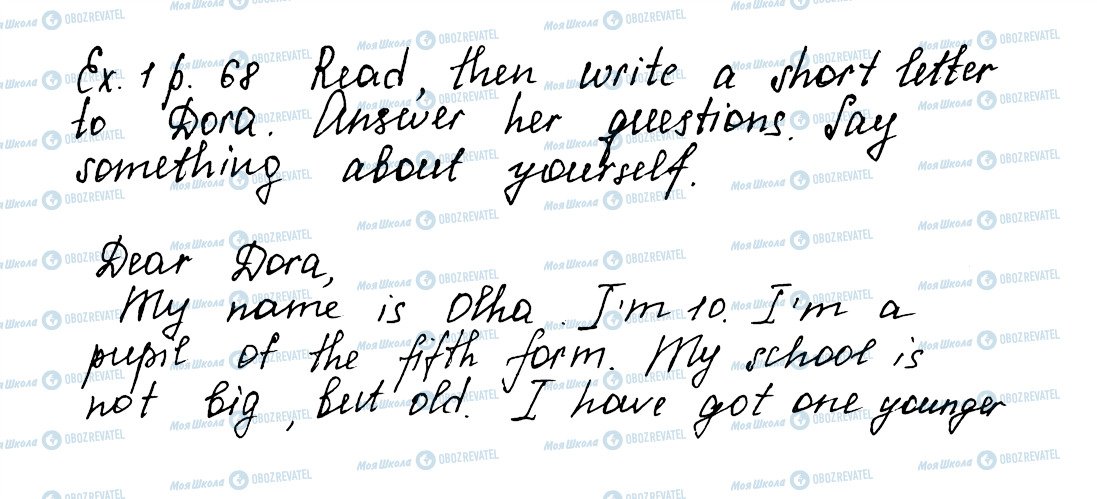 Ex. 1 p. 68 Read, then write a short letter
to Dora. Answer her questions. Say
something about yourself.
Dear Dora,
My name is Olha. I'm 10. I'm a
pupil of the fifth form. My school is
not big, but old. I have got one younger